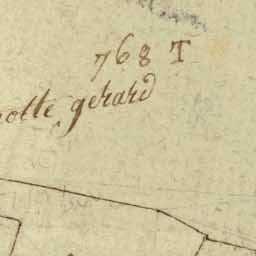 768 T
otte gerard